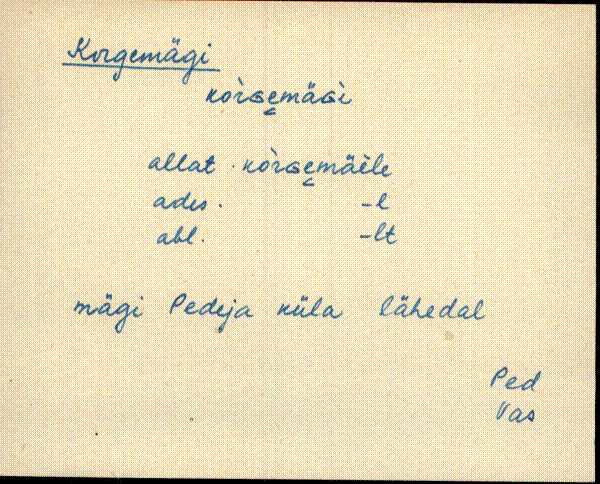 Korgemägi
kòrɢemäɢì
allat. kòrɢemäèle
ades. -l
abl. -lt
mägi Pedeja küla lähedal
Ped
Vas